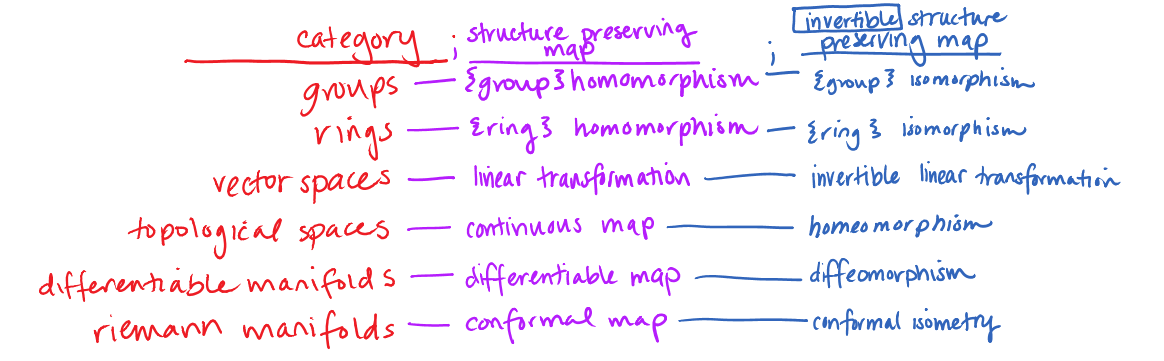 category ; structure preserving map ; invertible structure preserving map
groups — {group} homomorphism — {group} isomorphism
rings — {ring} homomorphism — {ring} isomorphism
vector spaces — linear transformation — invertible linear transformation
topological spaces — continuous map — homeomorphism
differentiable manifolds — differentiable map — diffeomorphism
riemann manifolds — conformal map — conformal isometry